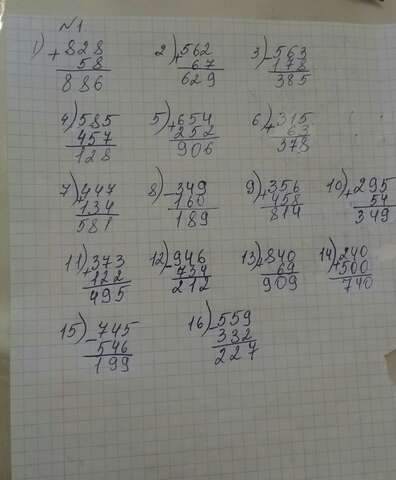 №1
1) +828 2) +562 3) -563
58 67 178
886 629 385
4) 585 5) +654 6) +315
457 252 63
128 906 378
7) +447 8) -349 9) +356 10) +295
134 160 458 54
581 189 814 349
11) +373 12) -946 13) +840 14) +240
122 734 69 500
495 212 909 740
15) -745 16) -559
546 332
199 227